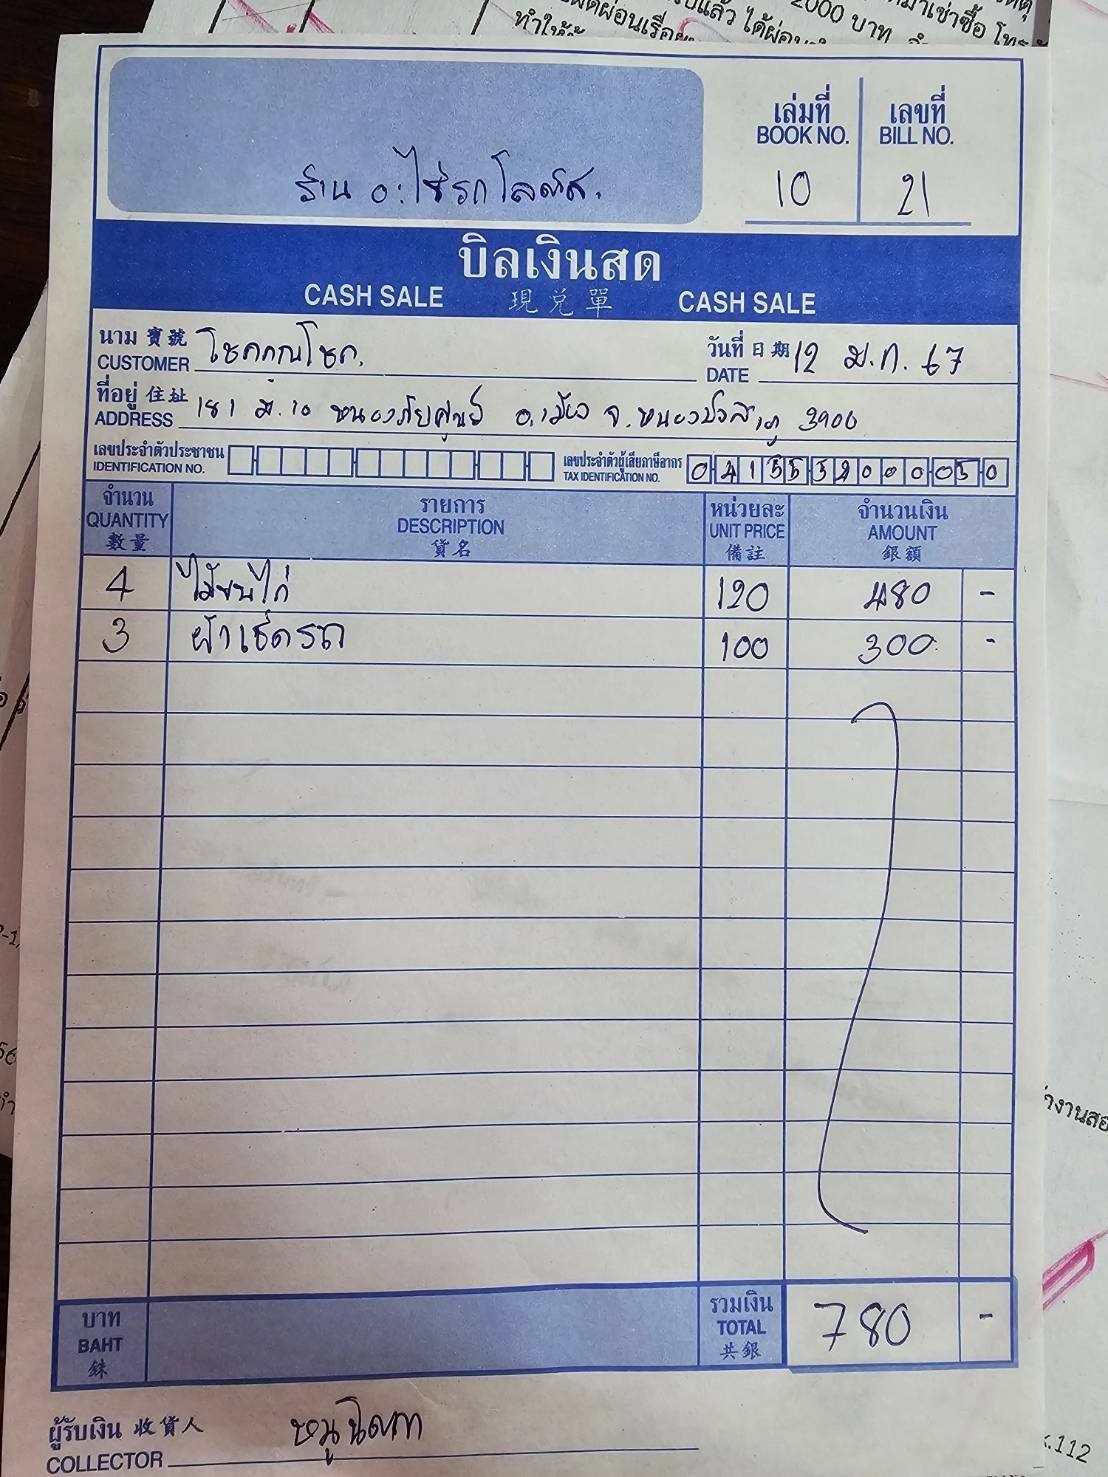 เล่มที่ เลขที่
BOOK NO. BILL NO.
10 21
ร้าน อ.
บิลเงินสด
CASH SALE 現兌單 CASH SALE
นาม 寶號 โชคคณโชค. วันที่ 日期 12 ม.ค. 67
CUSTOMER DATE
ที่อยู่ 住址 181 ม.10 หนองภัยศูนย์ อ.เมือง จ.หนองบัวลำภู 3900
ADDRESS
เลขประจำตัวประชาชน เลขประจำตัวผู้เสียภาษีอากร
IDENTIFICATION NO. TAX IDENTIFICATION NO.
จำนวน รายการ หน่วยละ จำนวนเงิน
QUANTITY DESCRIPTION UNIT PRICE AMOUNT
數量 貨名 備註 銀額
4 ไม้ขนไก่ 120 480 -
3 ผ้าเช็ดรถ 100 300 -
บาท รวมเงิน
BAHT TOTAL 780 -
銖 共銀
ผู้รับเงิน 收貨人
COLLECTOR